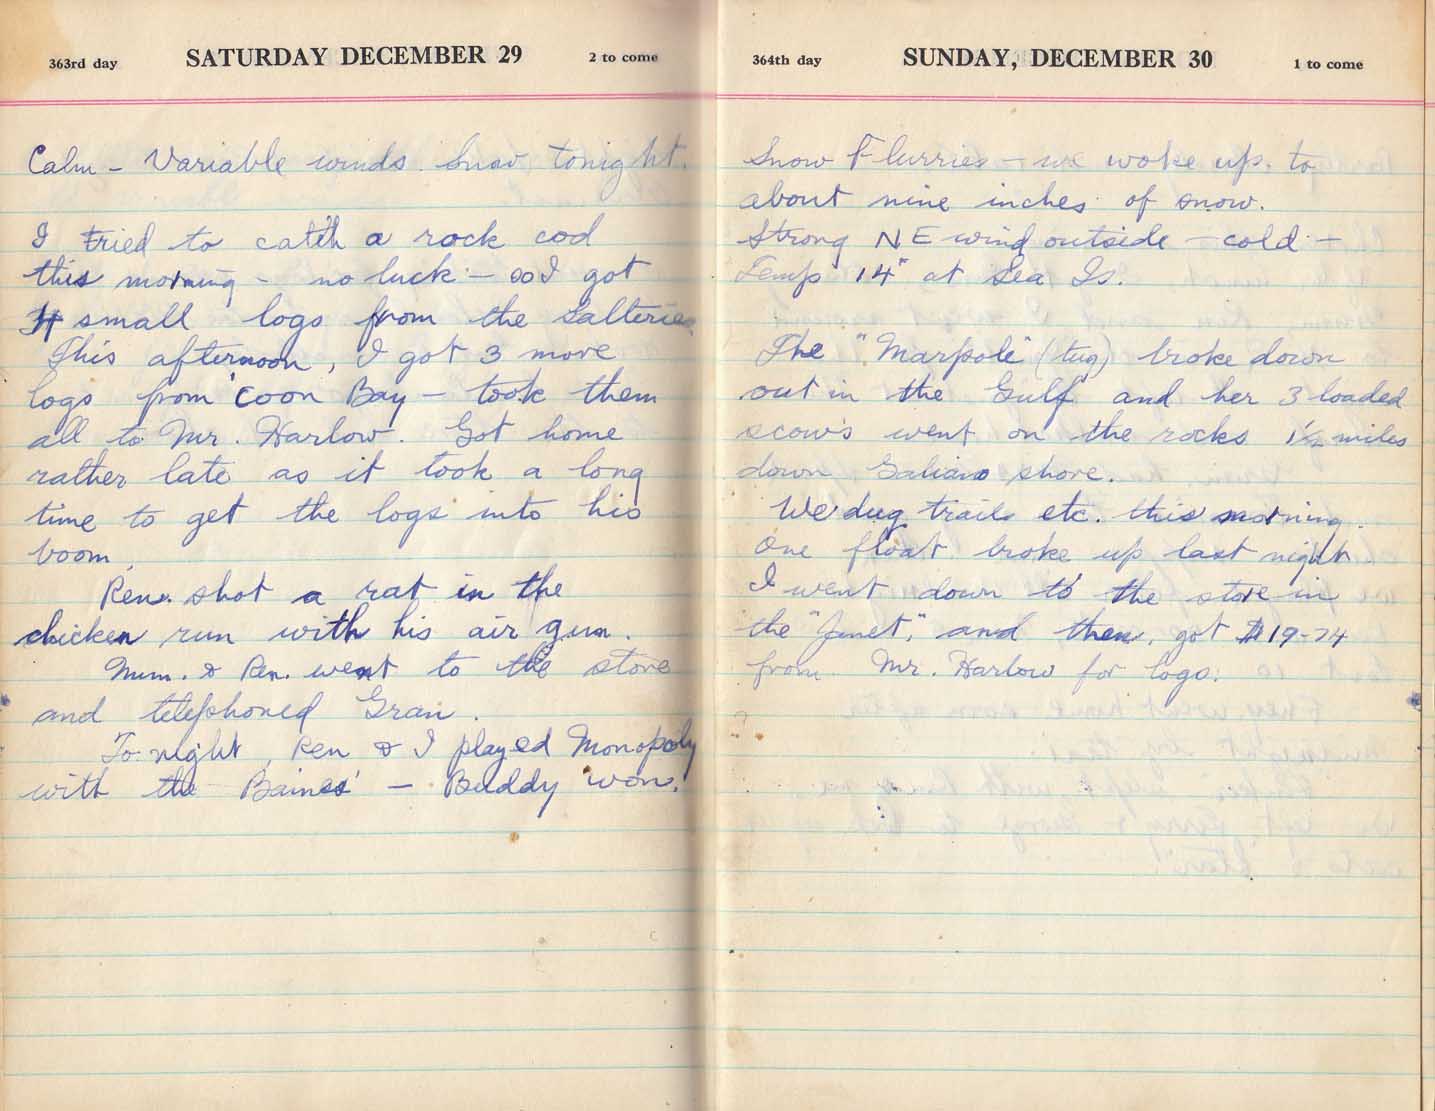 363rd day SATURDAY DECEMBER 29 2 to come
Calm - Variable winds. Snow tonight.
I tried to catch a rock cod
this morning - no luck - so I got
4 small logs from the Salteries.
This afternoon, I got 3 more
logs from 'Coon Bay - took them
all to Mr. Harlow. Got home
rather late as it took a long
time to get the logs into his
boom.
Ren. shot a rat in the
chicken run with his air gun.
Mum. & Ren. went to the store
and telephoned Gran.
To-night, Ren & I played Monopoly
with the Baines' - Buddy won.
364th day SUNDAY, DECEMBER 30 1 to come
Snow Flurries - we woke up to
about nine inches of snow.
Strong NE wind outside - cold -
Temp 14° at Sea Is.
The "Marpole" (tug) broke down
out in the Gulf and her 3 loaded
scows went on the rocks 1½ miles
down Galiano shore.
We dug trails etc. this morning.
One float broke up last night
I went down to the store in
the "Janet", and then, got $19-74
from Mr. Harlow for logs.